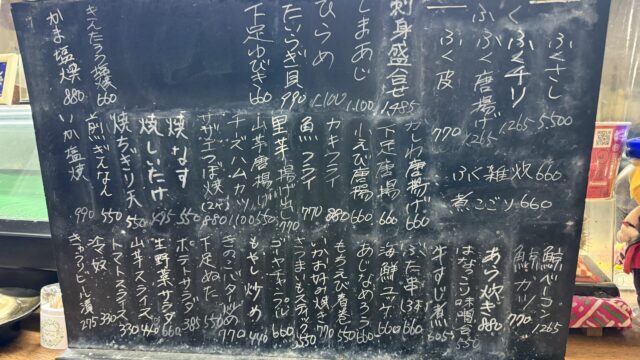 ふくさし 5.500
ふくチリ 1265
ふく唐揚げ 1265
ふく皮 770
ふく雑炊 660
煮こごり 660
刺身盛合せ 1.485
しまあじ 1.100
ひらめ 1.100
たいらぎ貝 990
下足ゆびき 660
きんたろう塩焼 660
かま塩焼 880
唐揚げ 660
下足唐揚 660
小えび唐揚 660
カキフライ 880
魚フライ 770
里芋揚げ出し 770
山芋唐揚げ 550
チーズハムカツ 1100
サザエつぼ焼(2ヶ) 880
焼なす 550
焼しいたけ 495
焼ちぎり天 550
煎ぎんなん 550
いか塩焼 990
鯨ベーコン 1265
鯨カツ 770
あら炊き 880
牛すじ煮 605
ぶた串(3本) 660
海鮮ユッケ 660
あじなめろう 660
もちえび春巻 550
いかお好み焼き 770
さつまいもスティック 550
ゴーヤチャンプル 660
もやし炒め 440
きのこバター炒め 770
下足ぬた 550
ポテトサラダ 385
生野菜サラダ 660
山芋スライス 440
トマトスライス 330
冷奴 330
きゅうりピール漬 275